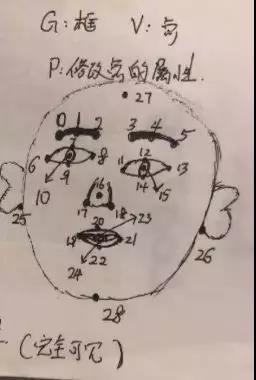 G:框 V:点
P:修改点的属性.
27
0 1 2 3 4 5
6 7 8 11 12 13
9 14
10 15
16
17 18
25 20 23
19 21 26
22
24
28
(完全可见)